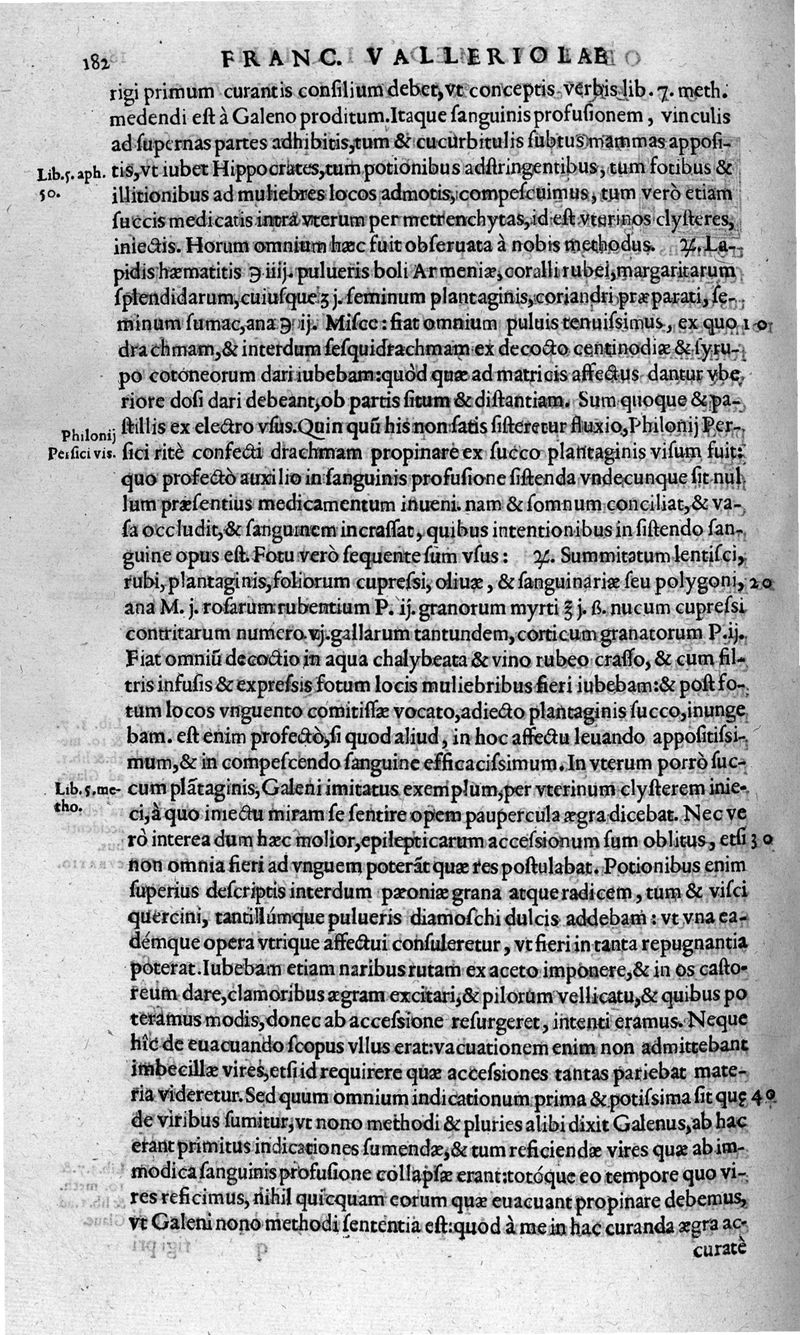 182 FRANC. VALLERIOLAE
rigi primum curantis consilium debet, vt conceptis verbis lib. 7. meth.
medendi est à Galeno proditum. Itaque sanguinis profusionem, vinculis
ad supernas partes adhibitis, tum & cucurbitulis subtus mammas apposi-
Lib. 5. aph. 50.
tis, vt iubet Hippocrates, tum potionibus adstringentibus, tum fotibus &
illitionibus ad muliebres locos admotis, compescuimus, tum verò etiam
succis medicatis intra vterum per metrenchytas, id est vterinos clysteres,
iniectis. Horum omnium hæc fuit obseruata à nobis methodus. ℞. La-
pidis hæmatitis ℈ iiij. pulueris boli Armeniæ, coralli rubei, margaritarum
splendidarum, cuiusque ʒ j. seminum plantaginis, coriandri præparati, se-
minum sumac, ana ℈ ij. Misce: fiat omnium puluis tenuissimus, ex quo 10
drachmam, & interdum sesquidrachmam ex decocto centinodiæ & syru-
po cotoneorum dari iubebam: quòd quæ ad matricis affectus dantur vbe
riore dosi dari debeant, ob partis situm & distantiam. Sum quoque & pa-
Philonij Persici vis.
stillis ex electro vsus. Quin quū his non satis sisteretur fluxio, Philonij Per-
sici ritè confecti drachmam propinare ex succo plantaginis visum fuit:
quo profectò auxilio in sanguinis profusione sistenda vndecunque sit nul
lum præsentius medicamentum inueni. nam & somnum conciliat, & va-
sa occludit, & sanguinem incrassat, quibus intentionibus in sistendo san-
guine opus est. Fotu verò sequente sum vsus: ℞. Summitatum lentisci,
rubi, plantaginis, foliorum cupressi, oliuæ, & sanguinariæ seu polygoni, 20
ana M. j. rosarum rubentium P. ij. granorum myrti ℥ j. ß. nucum cupressi
contritarum numero vj. gallarum tantundem, corticum granatorum P. ij.
Fiat omniū decoctio in aqua chalybeata & vino rubeo crasso, & cum fil-
tris infusis & expressis fotum locis muliebribus fieri iubebam: & post fo-
tum locos vnguento comitissæ vocato, adiecto plantaginis succo, inunge
bam. est enim profectò, si quod aliud, in hoc affectu leuando appositissi-
mum, & in compescendo sanguine efficacissimum. In vterum porrò suc-
Lib. 5. me-
tho.
cum plātaginis, Galeni imitatus exemplum, per vterinum clysterem inie-
ci, à quo iniectu miram se sentire opem paupercula ægra dicebat. Nec ve
rò interea dum hæc molior, epilepticarum accessionum sum oblitus, etsi 30
non omnia fieri ad vnguem poterāt quæ res postulabat. Potionibus enim
superius descriptis interdum pæoniæ grana atque radicem, tum & visci
quercini, tantillúmque pulueris diamoschi dulcis addebam: vt vna ea-
démque opera vtrique affectui consuleretur, vt fieri in tanta repugnantia
poterat. Iubebam etiam naribus rutam ex aceto imponere, & in os casto-
reum dare, clamoribus ægram excitari, & pilorum vellicatu, & quibus po
teramus modis, donec ab accessione resurgeret, intenti eramus. Neque
hîc de euacuando scopus vllus erat: vacuationem enim non admittebant
imbecillæ vires, etsi id requirere quæ accessiones tantas pariebat mate-
ria videretur. Sed quum omnium indicationum prima & potissima sit quę 40
de viribus sumitur, vt nono methodi & pluries alibi dixit Galenus, ab hac
erant primitus indicationes sumendæ, & tum reficiendæ vires quæ ab im-
modica sanguinis profusione collapsæ erant: totóque eo tempore quo vi-
res reficimus, nihil quicquam eorum quæ euacuant propinare debemus,
vt Galeni nono methodi sententia est: quod à me in hac curanda ægra ac-
curatè